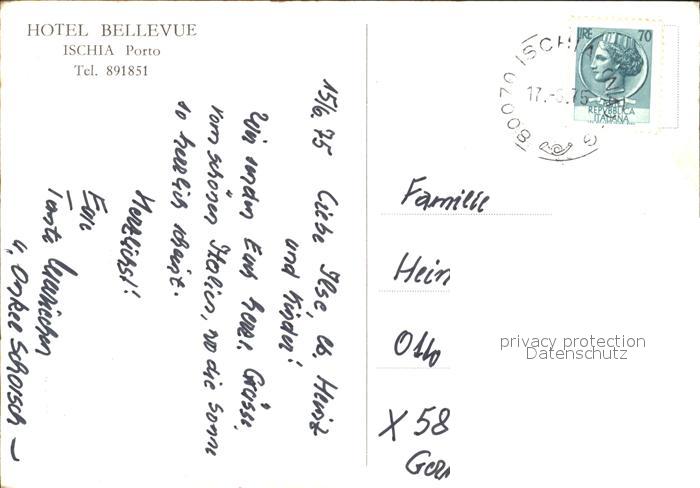 HOTEL BELLEVUE
ISCHIA Porto
Tel. 891851
15/6.75 Liebe Ilse, lb. Heinz
und Kinder!
Wir senden Euch herzl. Grüsse
vom schönen Italien, wo die Sonne
so herrlich scheint.
Herzlichst!
Eure
Tante
u. Onkel Schorsch
LIRE 70
REPVBBLICA
ITALIANA
80070 ISCHIA
17.-6.75
Familie
Hein
Otto
X 58
Ger
privacy protection
Datenschutz